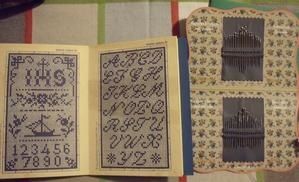 IHS
123456
7890
ABCD
EFGH
IJKLM
NOPQ
RSTU
VWX
YZ